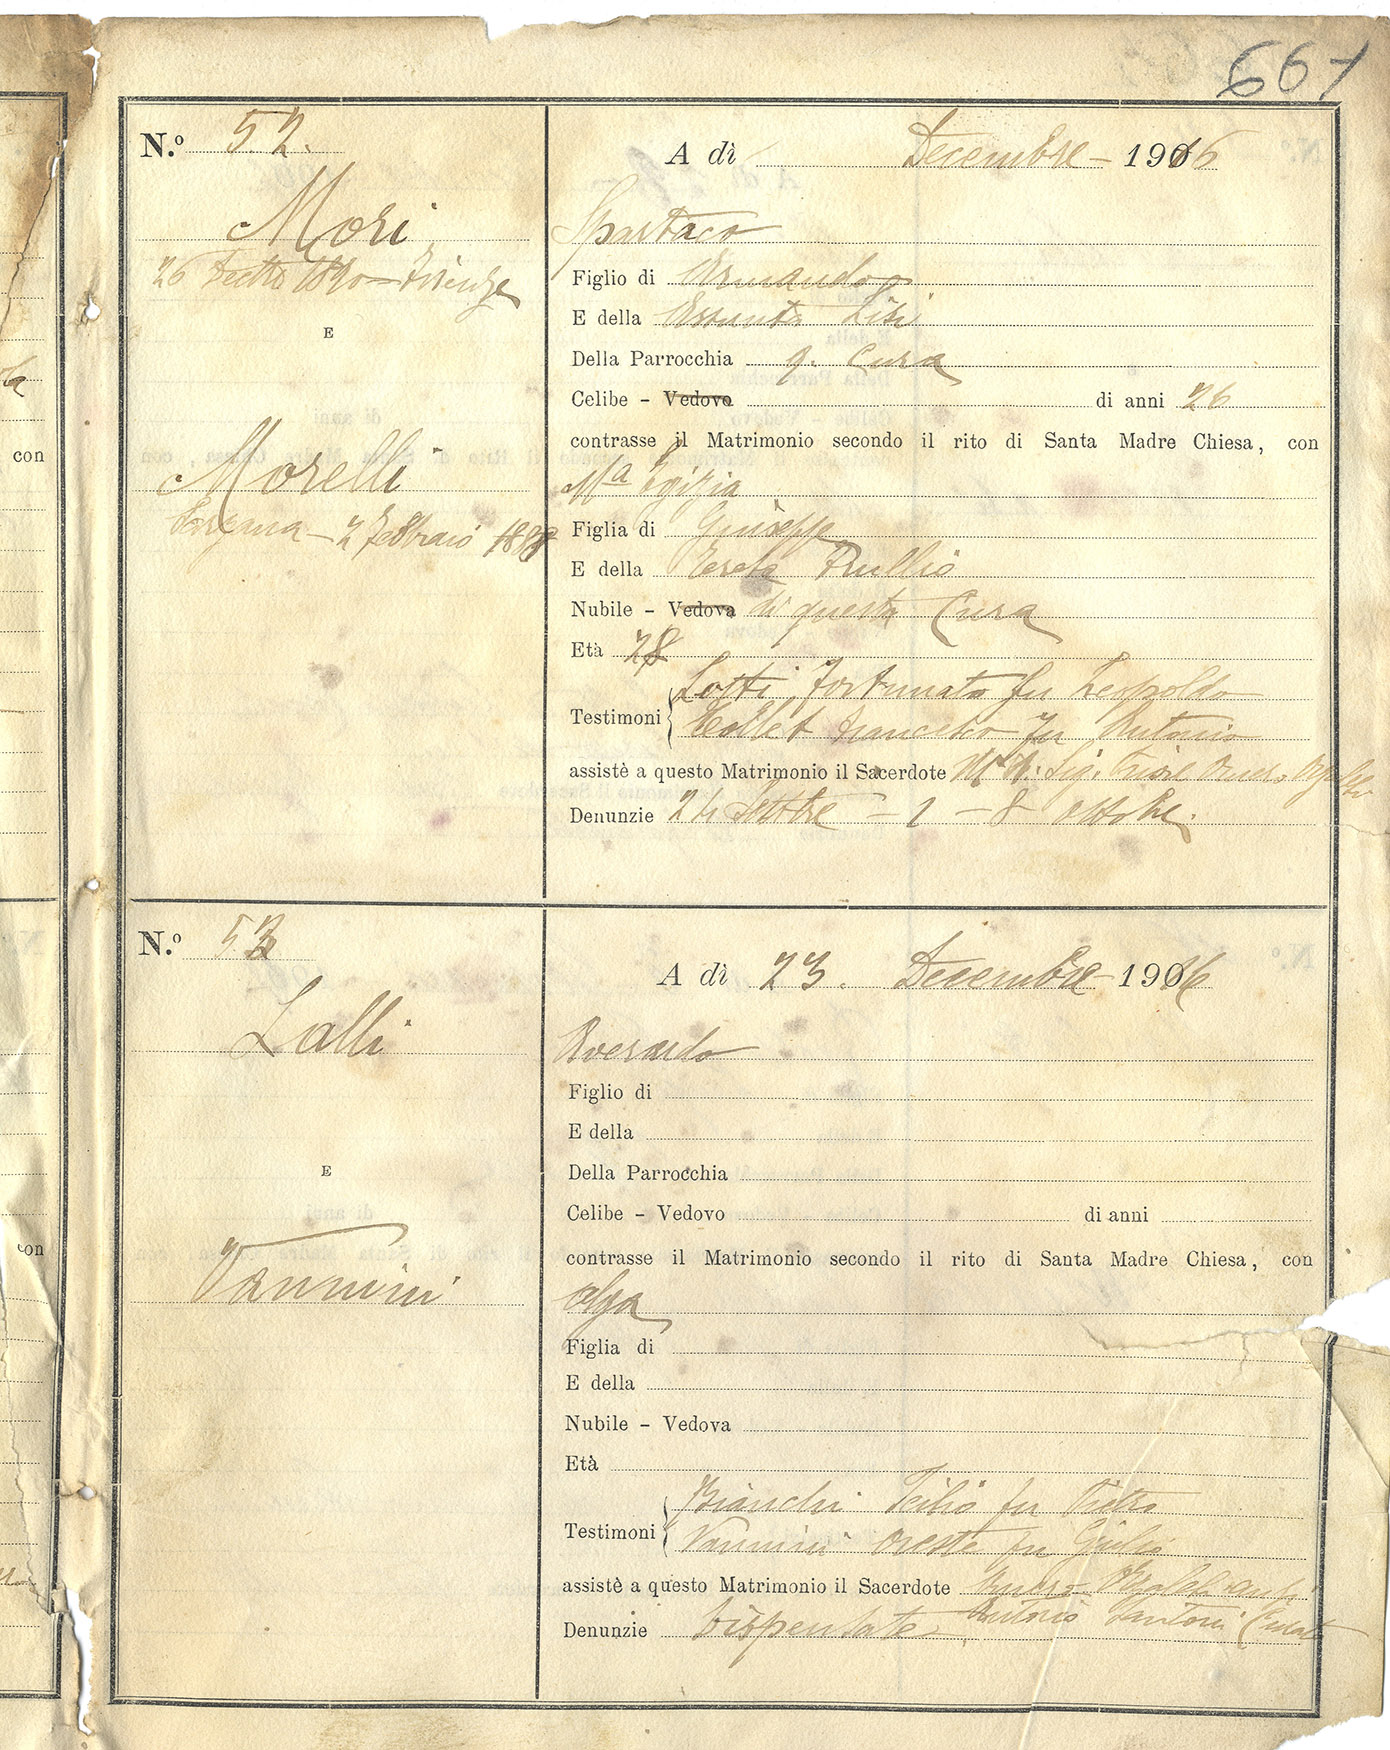 667
N.º 52.
A dì Decembre – 1916
Mori
Spartaco
26 1890 – Firenze
Figlio di Armando
E della Assunta Lisi
E
Della Parrocchia q. Cura
Celibe – Vedovo di anni 26
contrasse il Matrimonio secondo il rito di Santa Madre Chiesa, con
Morelli
Mª Egizia
Sarzana – 2 Febbraio 1888
Figlia di Giuseppe
E della Trullio
Nubile – Vedova di questa Cura
Età 28
Lotti Fortunato fu Leopoldo
Testimoni
Francesco fu Antonio
assistè a questo Matrimonio il Sacerdote M. R. Sig.
Denunzie 24 Settbre – 1 – 8 Ottobre.
N.º 53
A dì 23. Decembre – 1916
Lalli
Averardo
Figlio di
E della
E
Della Parrocchia
Celibe – Vedovo di anni
contrasse il Matrimonio secondo il rito di Santa Madre Chiesa, con
Vannini
Olga
Figlia di
E della
Nubile – Vedova
Età
Bianchi Icilio fu Pietro
Testimoni
Vannini Oreste fu Giulio
assistè a questo Matrimonio il Sacerdote
Antonio Santoni Curato
Denunzie Dispensate
con
con